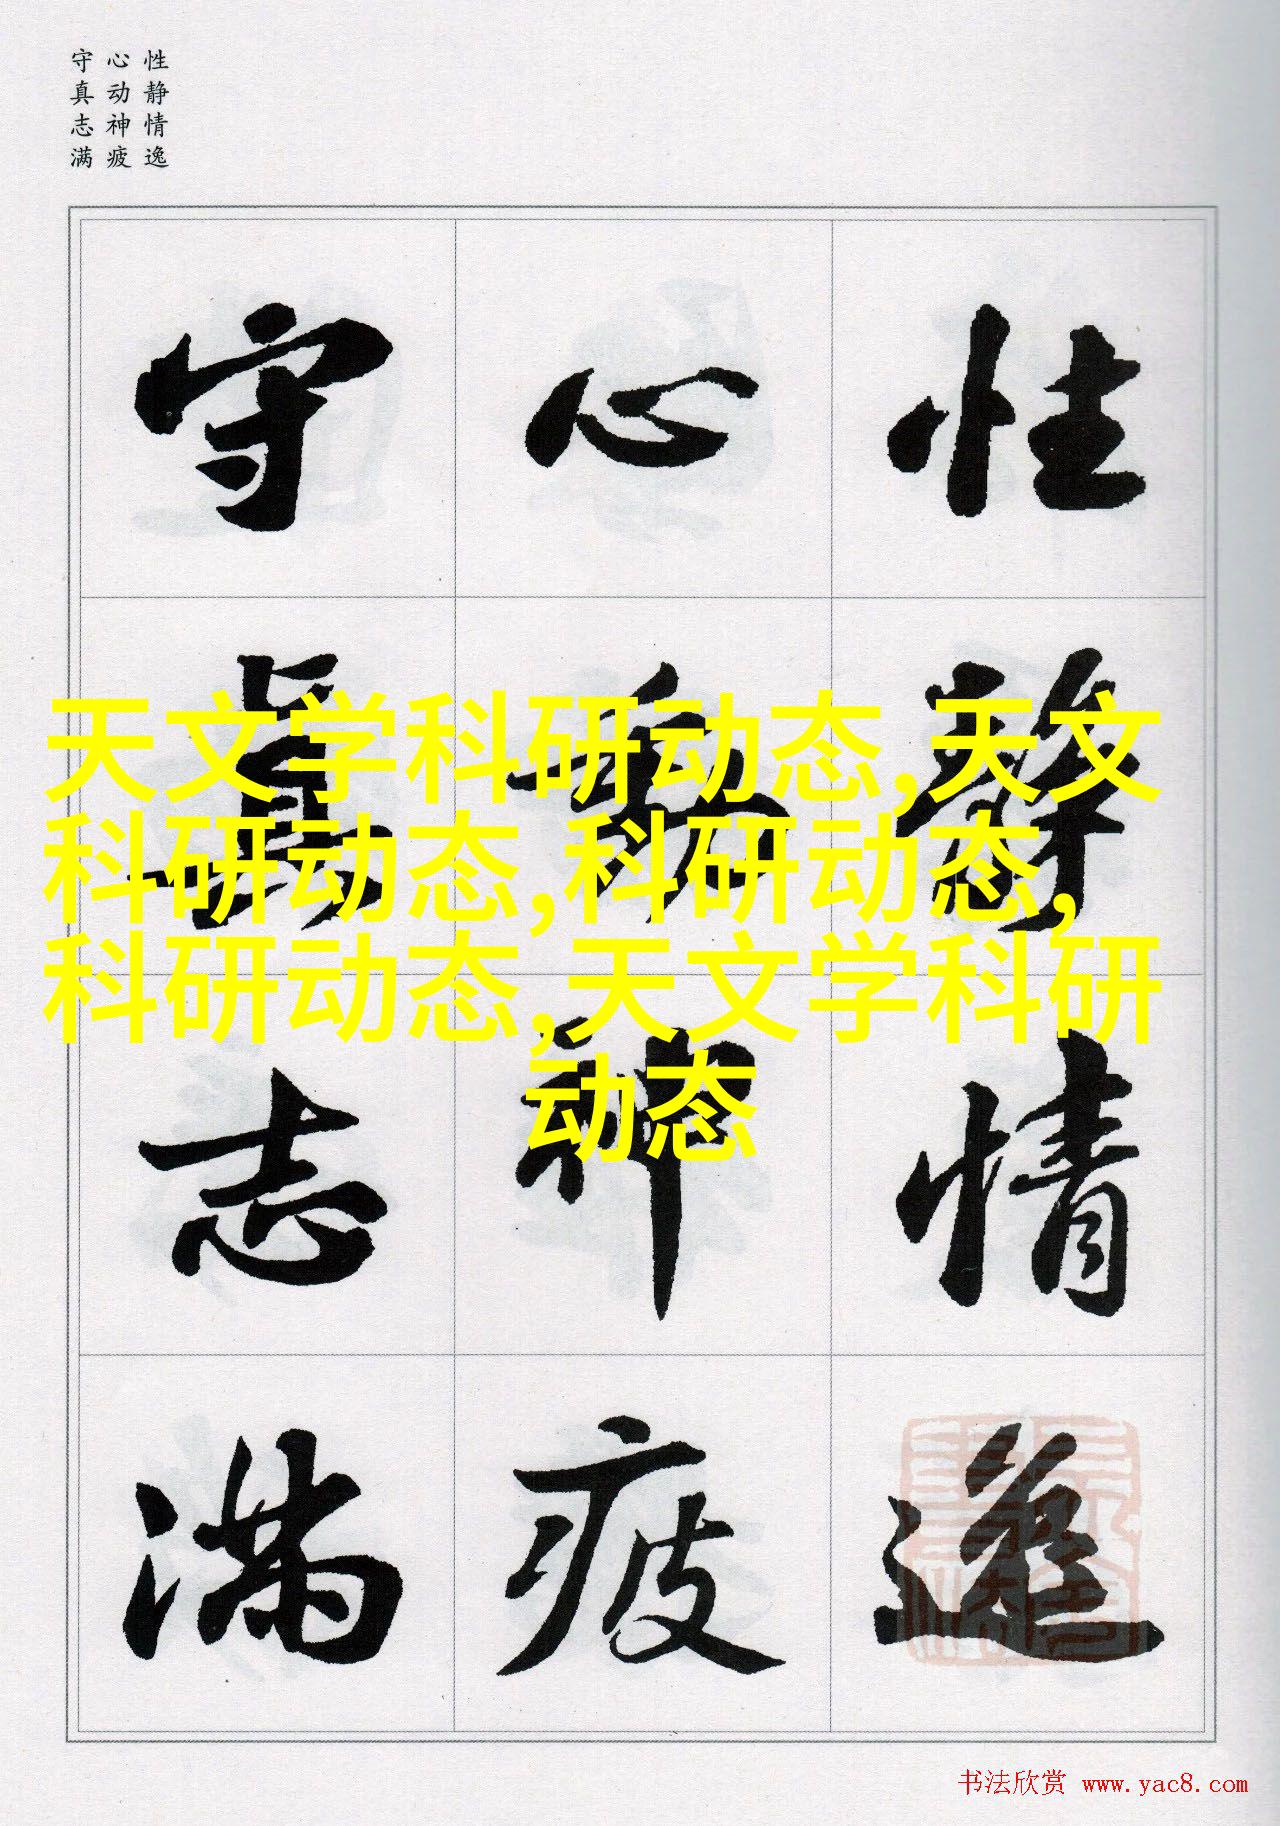 性静情逸
心动神疲
守真志满
性靜情逸
心動神疲
守眞志滿
天文学科研动态,天文
科研动态,科研动态,
科研动态,天文学科研
动态
书法欣赏 www.yac8.com